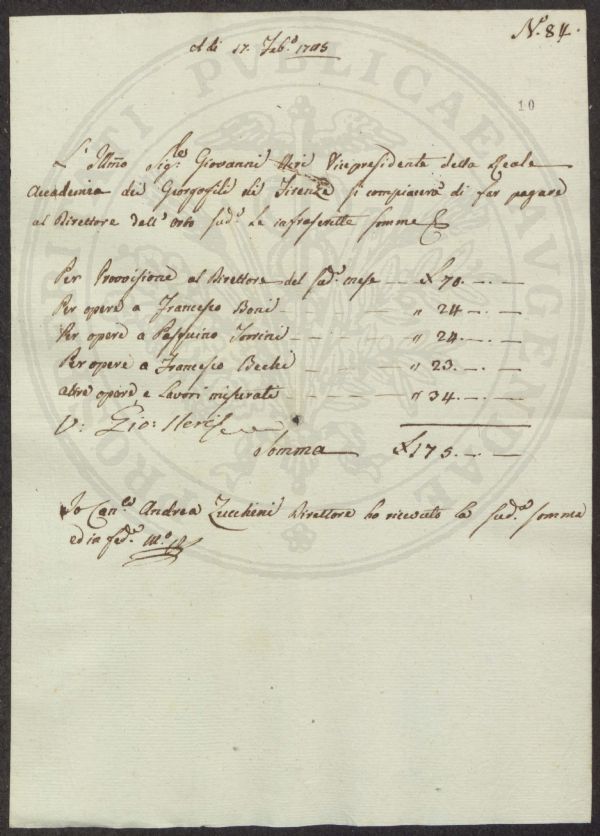 N.º 84.
A di 17. Feb.º 1785
10
L' Illmo Sig.re Giovanni Neri Vicepresidente della Reale
Accademia dei Georgofili di Firenze si compiacerà di far pagare
al Direttore dell' Orto sud.º le infrascritte somme
Per Provvisione al Direttore del sud.º mese — £ 70. — —
Per opere a Francesco Boni — — — " 24. — —
Per opere a Pasquino Torrini — — — " 24. — —
Per opere a Francesco Bechi — — — " 23. — —
altre opere e Lavori misurati — — — " 34. — —
V: Gio: Neri
Somma £ 175. — —
Io Can.co Andrea Zucchini Direttore ho ricevuto la sud.ª somma
ed in fede M.º P.ª
PUBLICAE